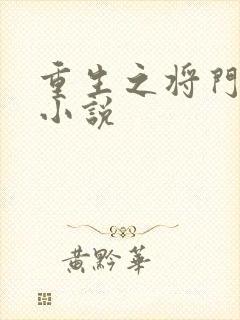 重生之将門
小說
黃黔華